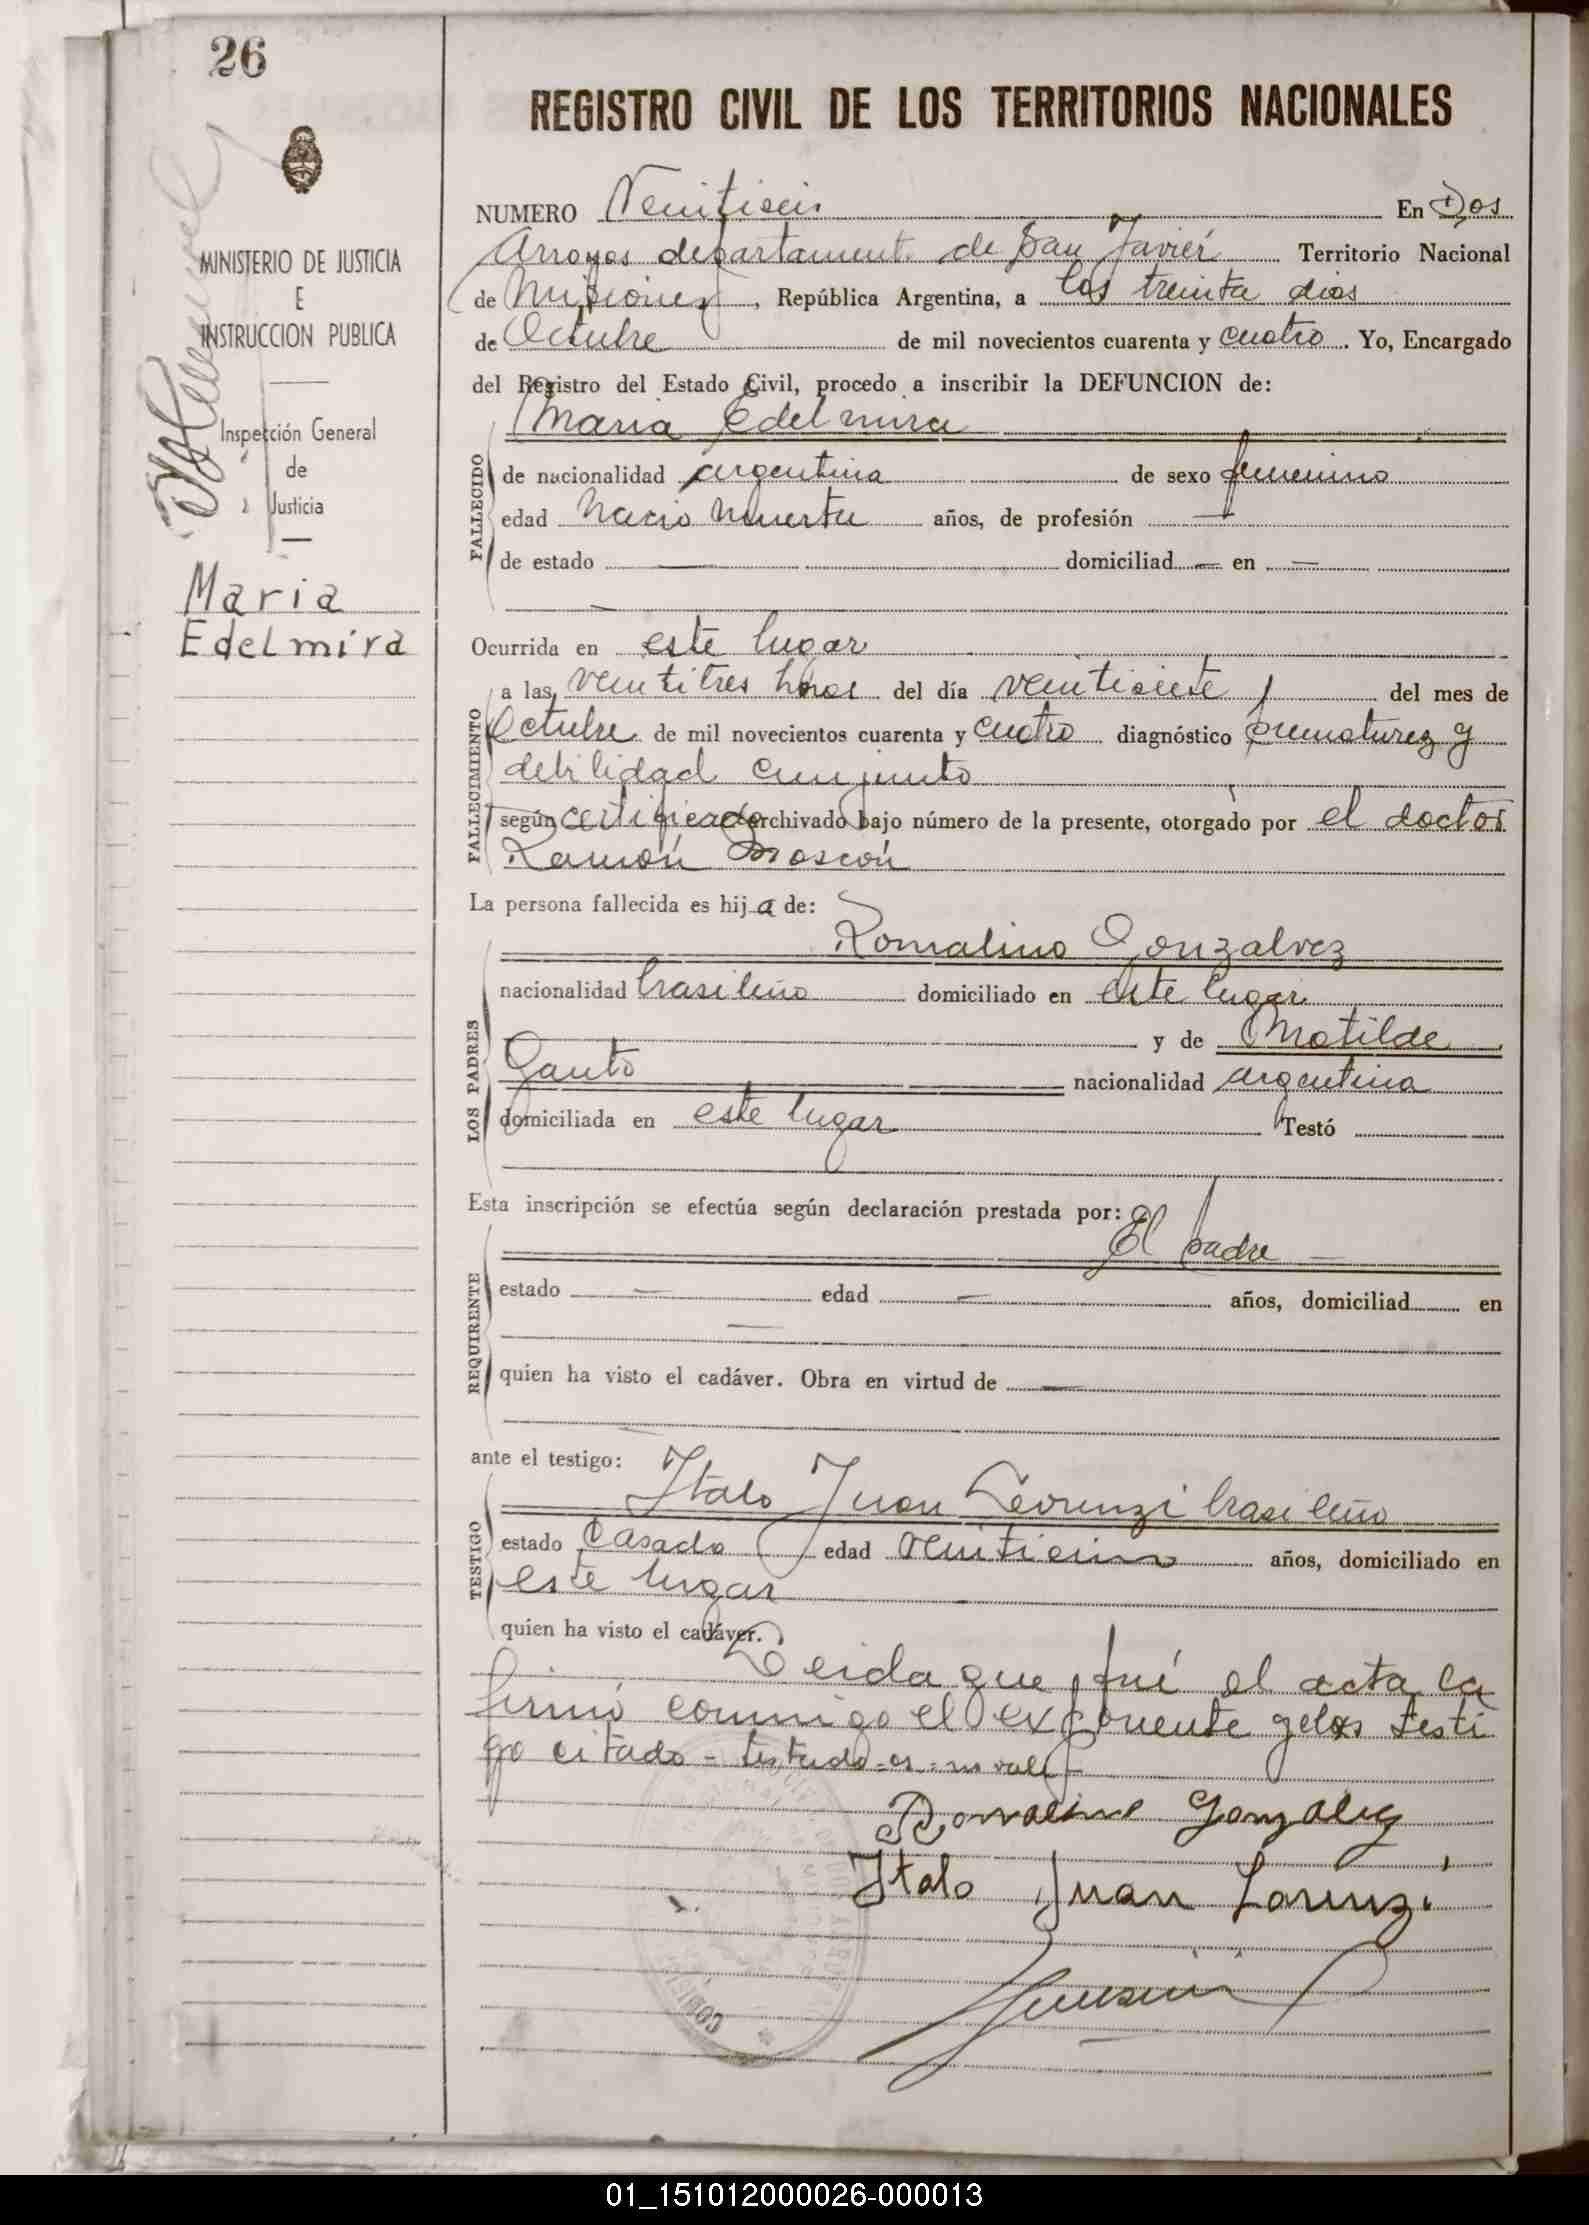 26
REGISTRO CIVIL DE LOS TERRITORIOS NACIONALES
MINISTERIO DE JUSTICIA
E
INSTRUCCION PUBLICA
Inspección General
de
Justicia
Maria
Edelmira
NUMERO Veintiseis En Dos
Arroyos departament. de San Javier Territorio Nacional
de Misiones, República Argentina, a los treinta dias
de Octubre de mil novecientos cuarenta y cuatro. Yo, Encargado
del Registro del Estado Civil, procedo a inscribir la DEFUNCION de:
Maria Edelmira
FALLECIDO
de nacionalidad argentina de sexo femenino
edad Nacio Muerta años, de profesión —
de estado — domiciliad — en —
—
Ocurrida en este lugar
FALLECIMIENTO
a las veintitres horas del día veintisiete del mes de
Octubre de mil novecientos cuarenta y cuatro diagnóstico prematurez y
debilidad conjunto
según certificado archivado bajo número de la presente, otorgado por el doctor
Ramón
La persona fallecida es hija de:
LOS PADRES
Romalino Gonzalvez
nacionalidad brasileño domiciliado en este lugar
y de Matilde
Gauto nacionalidad argentina
domiciliada en este lugar Testó
Esta inscripción se efectúa según declaración prestada por:
REQUIRENTE
El padre —
estado — edad — años, domiciliad en
—
quien ha visto el cadáver. Obra en virtud de —
ante el testigo:
TESTIGO
Italo Juan Lorenzi brasileño
estado Casado edad años, domiciliado en
este lugar
quien ha visto el cadáver.
Leida que fué el acta la
firmó conmigo el exponente y el testi
go citado = testado = os = no vale
Romalino Gonzalez
Italo Juan Lorenzi
01_151012000026-000013